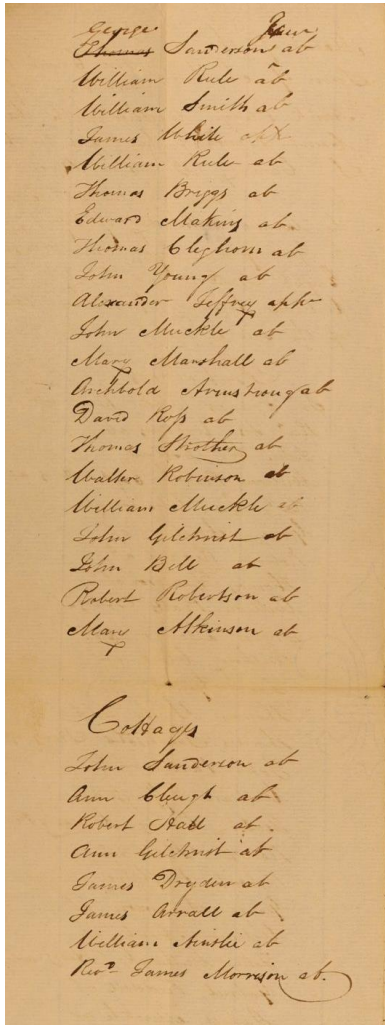 George
Thomas Sanderson ab
William Rule ab
William Smith ab
James White
William Rule ab
Thomas Briggs ab
Edward Making ab
Thomas Cleghorn ab
John Young ab
Alexander Jeffrey
John Muckle ab
Mary Marshall ab
Archbold Armstrong ab
David Ross ab
Thomas Strother ab
Walter Robinson ab
William Muckle ab
John Gilchrist ab
John Bell ab
Robert Robertson ab
Mary Atkinson ab
Cottages
John Sanderson ab
Ann Clough ab
Robert Hall ab
Ann Gilchrist ab
James Dryden ab
James Arrall ab
William Ainslie ab
Revd James Morrison ab.